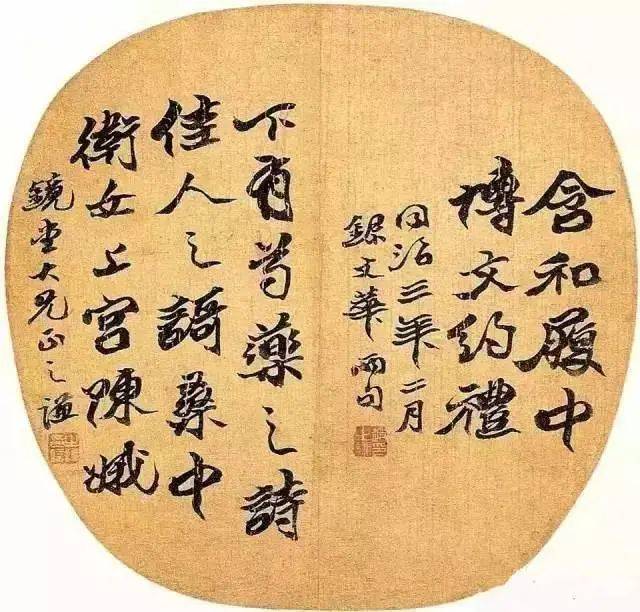 含和履中
博文約禮
同治三年二月
錄文華兩句
下有芍藥之詩
佳人之謌桑中
衛女上宮陳娥
鏡堂大兄正之謙